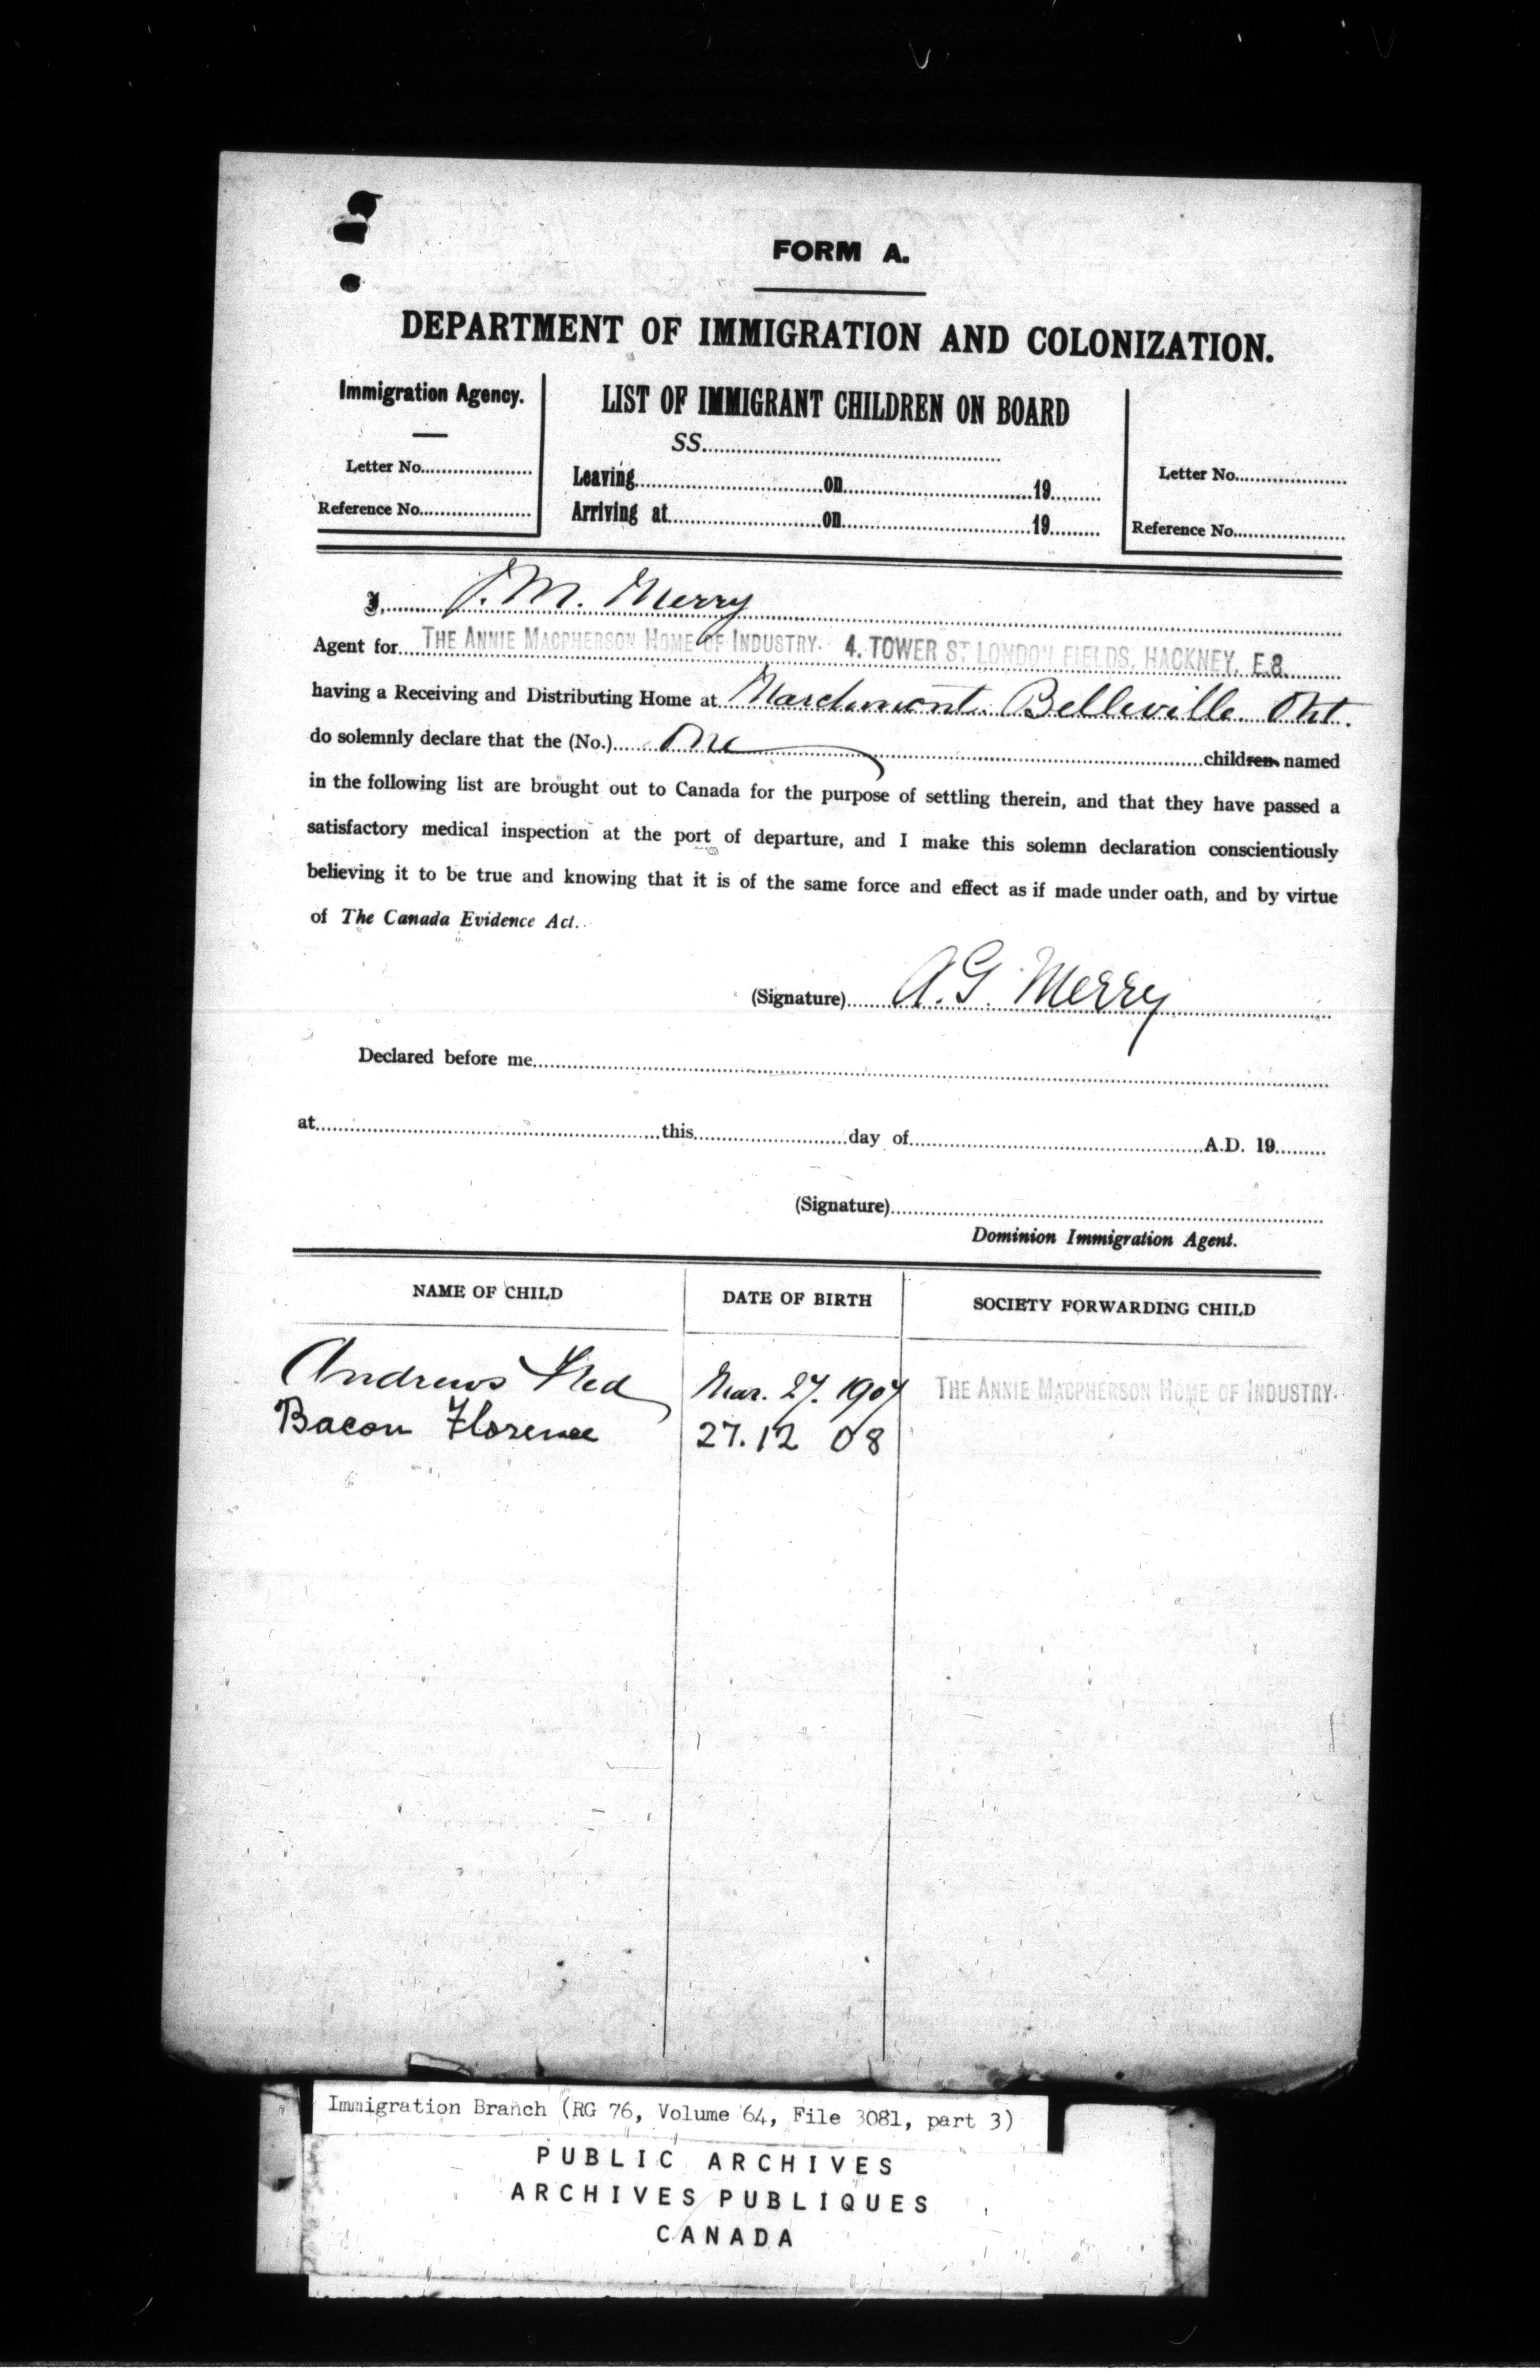 FORM A.
DEPARTMENT OF IMMIGRATION AND COLONIZATION.
Immigration Agency.
Letter No....................
Reference No....................
LIST OF IMMIGRANT CHILDREN ON BOARD
SS....................
Leaving....................on....................19........
Arriving at....................on....................19........
Letter No....................
Reference No....................
I, J. M. Merry
Agent for THE ANNIE MACPHERSON HOME OF INDUSTRY. 4. TOWER ST LONDON FIELDS, HACKNEY, E.8.
having a Receiving and Distributing Home at Marchmont. Belleville. Ont.
do solemnly declare that the (No.) One children named
in the following list are brought out to Canada for the purpose of settling therein, and that they have passed a
satisfactory medical inspection at the port of departure, and I make this solemn declaration conscientiously
believing it to be true and knowing that it is of the same force and effect as if made under oath, and by virtue
of The Canada Evidence Act.
(Signature) A. G. Merry
Declared before me....................
at....................this....................day of....................A.D. 19........
(Signature)....................
Dominion Immigration Agent.
NAME OF CHILD DATE OF BIRTH SOCIETY FORWARDING CHILD
Andrews Fred Mar. 27. 1907 THE ANNIE MACPHERSON HOME OF INDUSTRY.
Bacon Florence 27.12 08
Immigration Branch (RG 76, Volume 64, File 3081, part 3)
PUBLIC ARCHIVES
ARCHIVES PUBLIQUES
CANADA